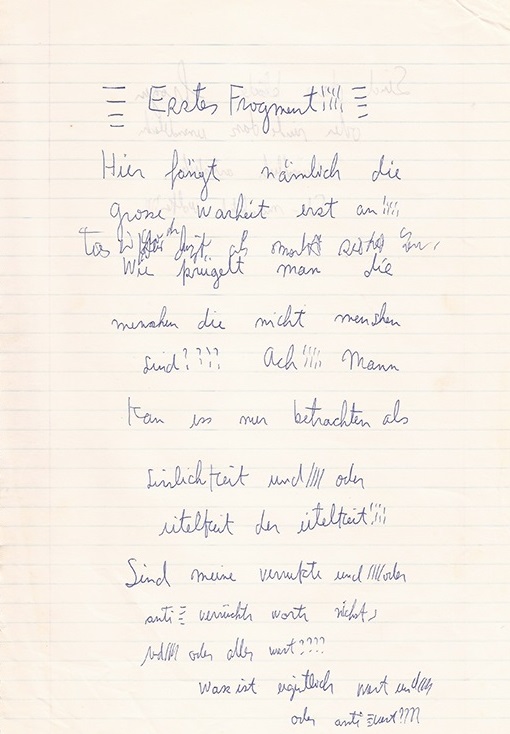 ≡ Erstes Fragment!!!! ≡
Hier fängt nämlich die
grosse warheit erst an!!!!
als
Wie prügelt man die
menshen die nicht menshen
sind???? Ach!!!! Mann
Kan ess nur betrachten als
sinlichkeit und//// oder
iitelkeit der iitelkeit!!!!
Sind meine verrukte und////oder
anti≡ verrückte worte nichts
und//// oder alles wert????
Was ist eigintlich wert und///
oder anti≡wert????